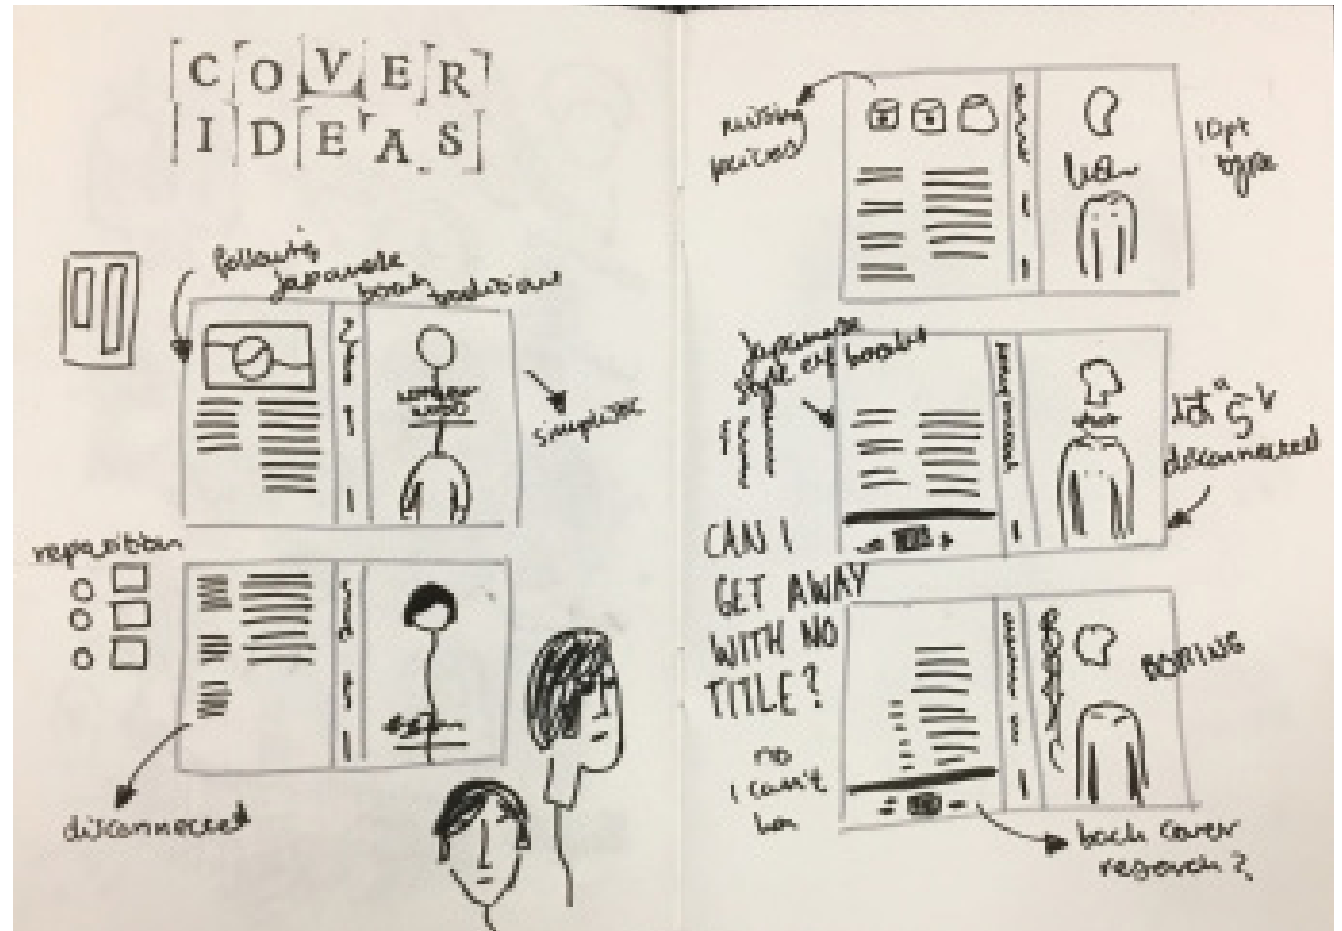 COVER
IDEAS
following
Japanese
book traditions
simplistic
repetition
disconnected
missing
10pt
type
Japanese
style of
disconnected
CAN I
GET AWAY
WITH NO
TITLE?
no
I can't
BORING
back cover
research?